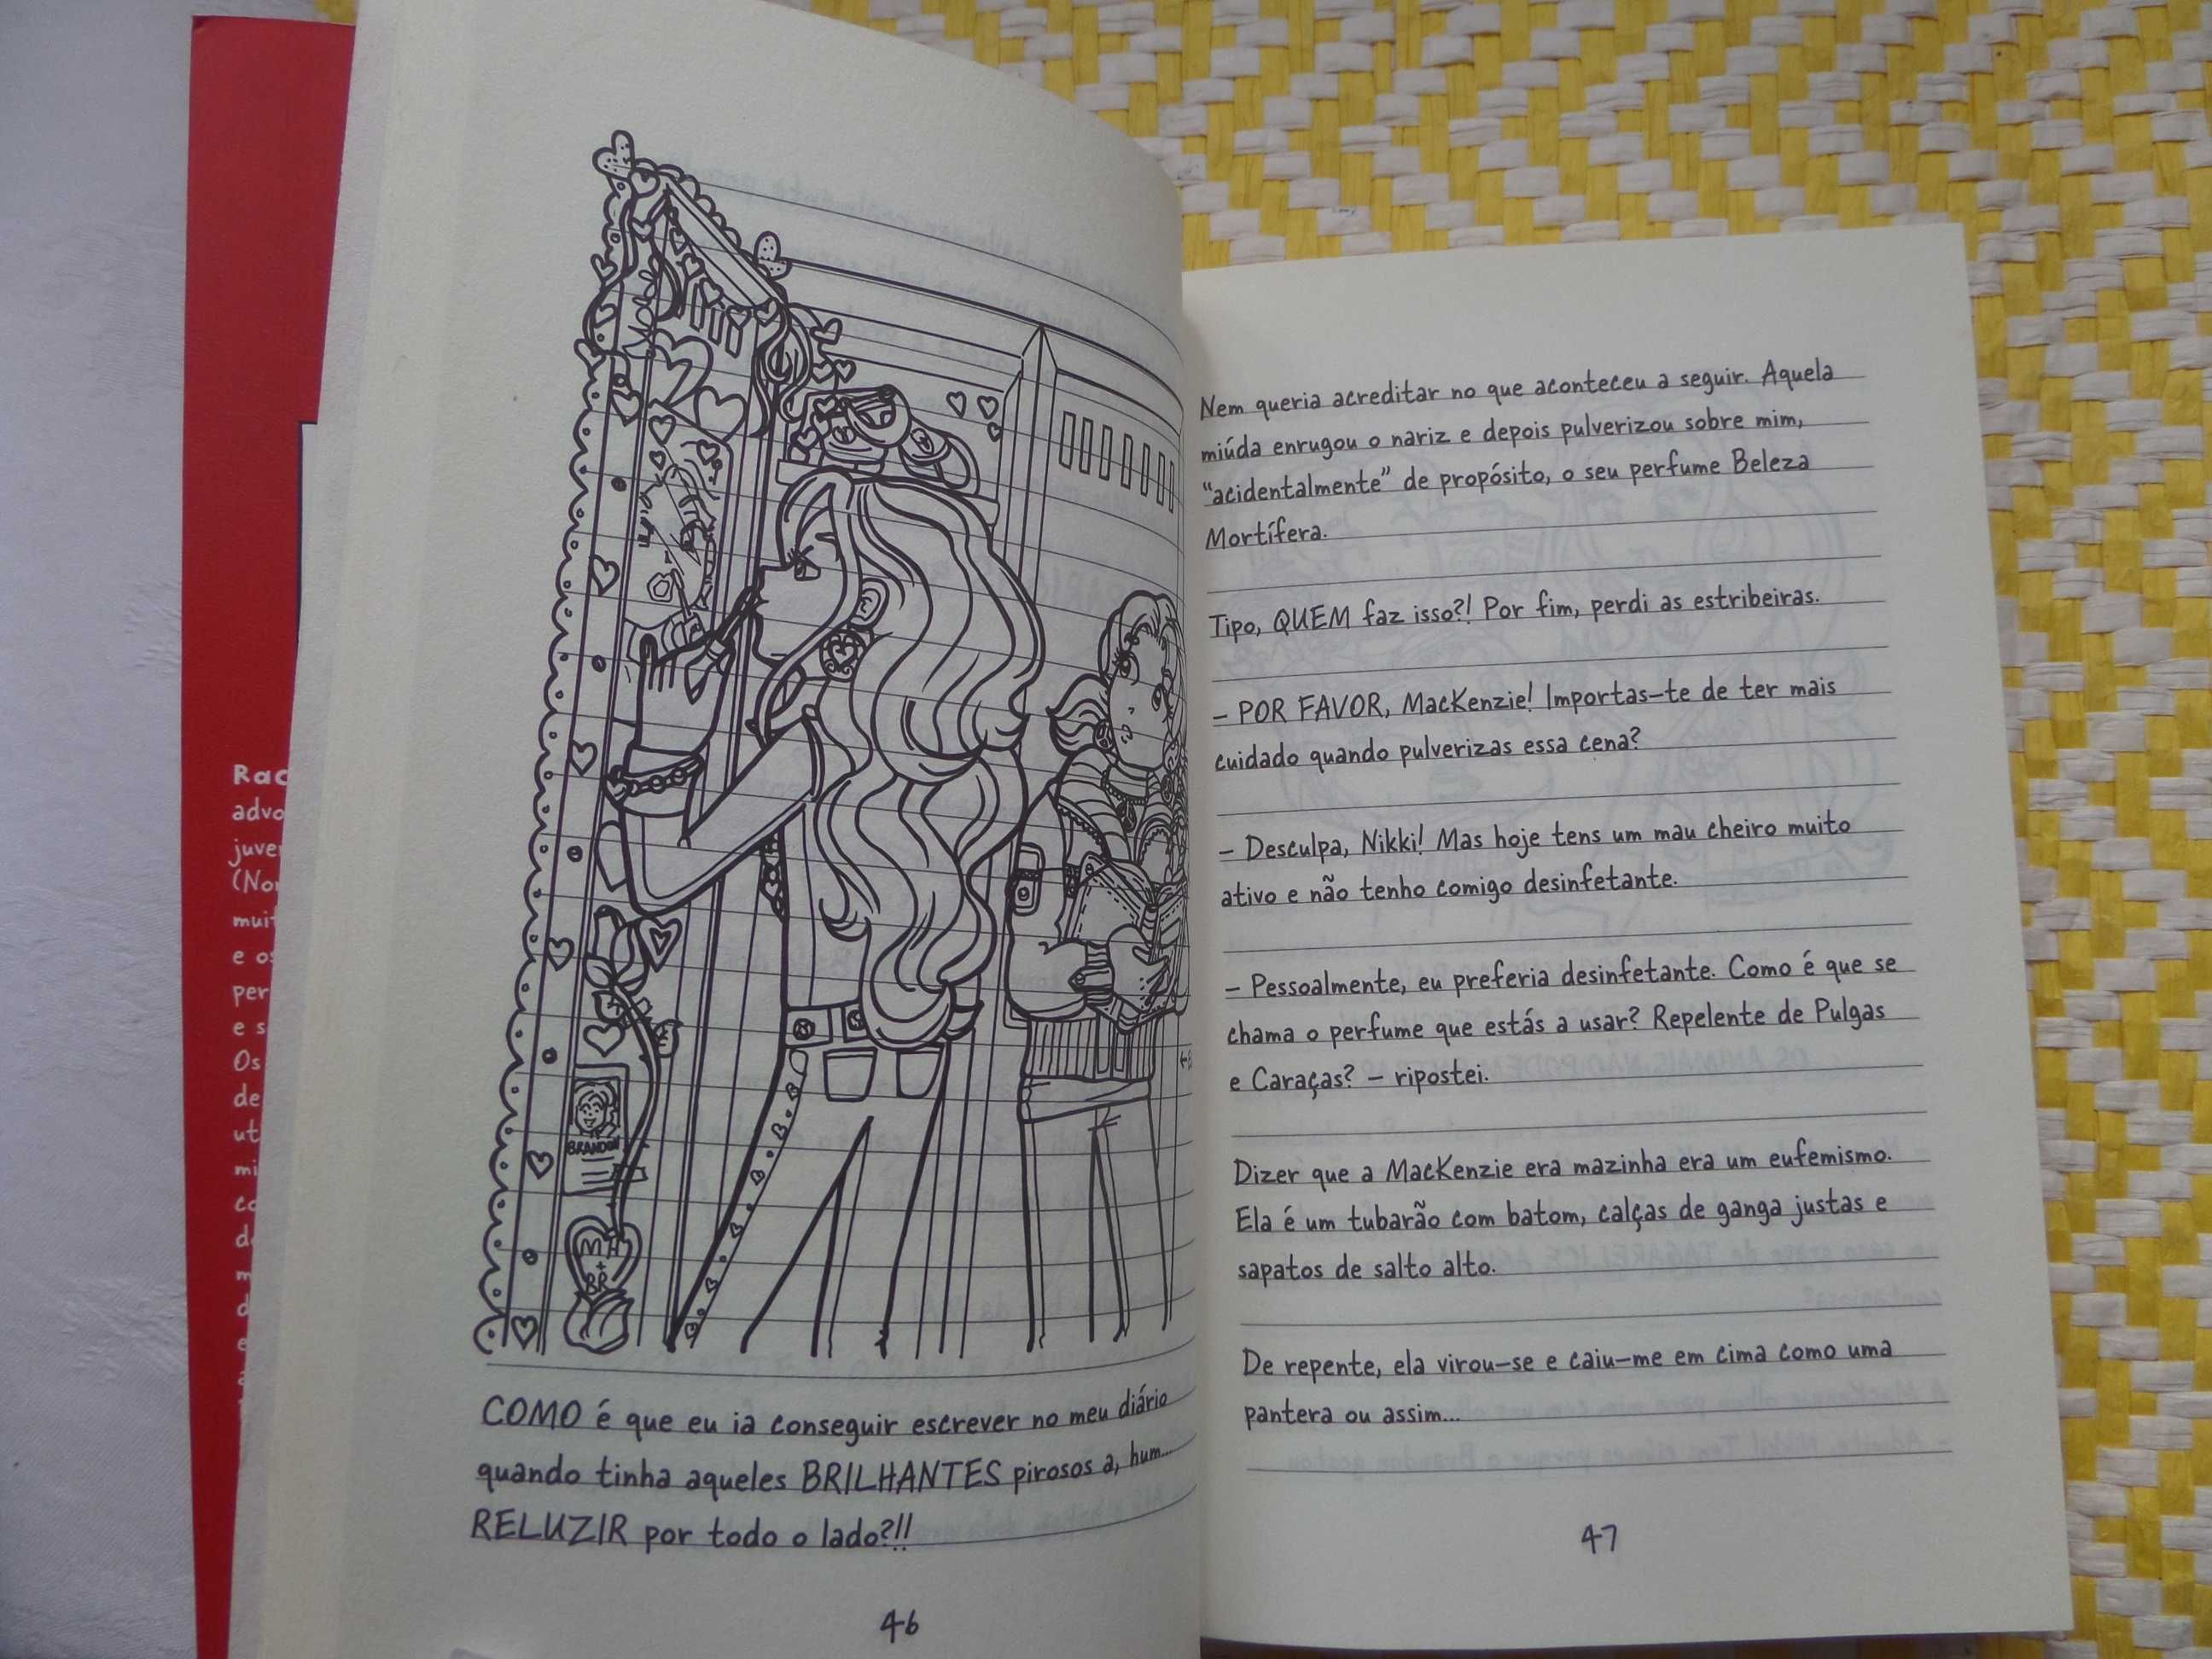 Rac
advo
juve
(No
muit
e os
per
e s
Os
de
ut
mi
co
BRANDON
MH
+
BR
COMO é que eu ia conseguir escrever no meu diário
quando tinha aqueles BRILHANTES pirosos a, hum...
RELUZIR por todo o lado?!!
46
Nem queria acreditar no que aconteceu a seguir. Aquela
miúda enrugou o nariz e depois pulverizou sobre mim,
“acidentalmente” de propósito, o seu perfume Beleza
Mortífera.
Tipo, QUEM faz isso?! Por fim, perdi as estribeiras.
– POR FAVOR, MacKenzie! Importas-te de ter mais
cuidado quando pulverizas essa cena?
– Desculpa, Nikki! Mas hoje tens um mau cheiro muito
ativo e não tenho comigo desinfetante.
– Pessoalmente, eu preferia desinfetante. Como é que se
chama o perfume que estás a usar? Repelente de Pulgas
e Caraças? – ripostei.
Dizer que a MacKenzie era mazinha era um eufemismo.
Ela é um tubarão com batom, calças de ganga justas e
sapatos de salto alto.
De repente, ela virou-se e caiu-me em cima como uma
pantera ou assim...
47